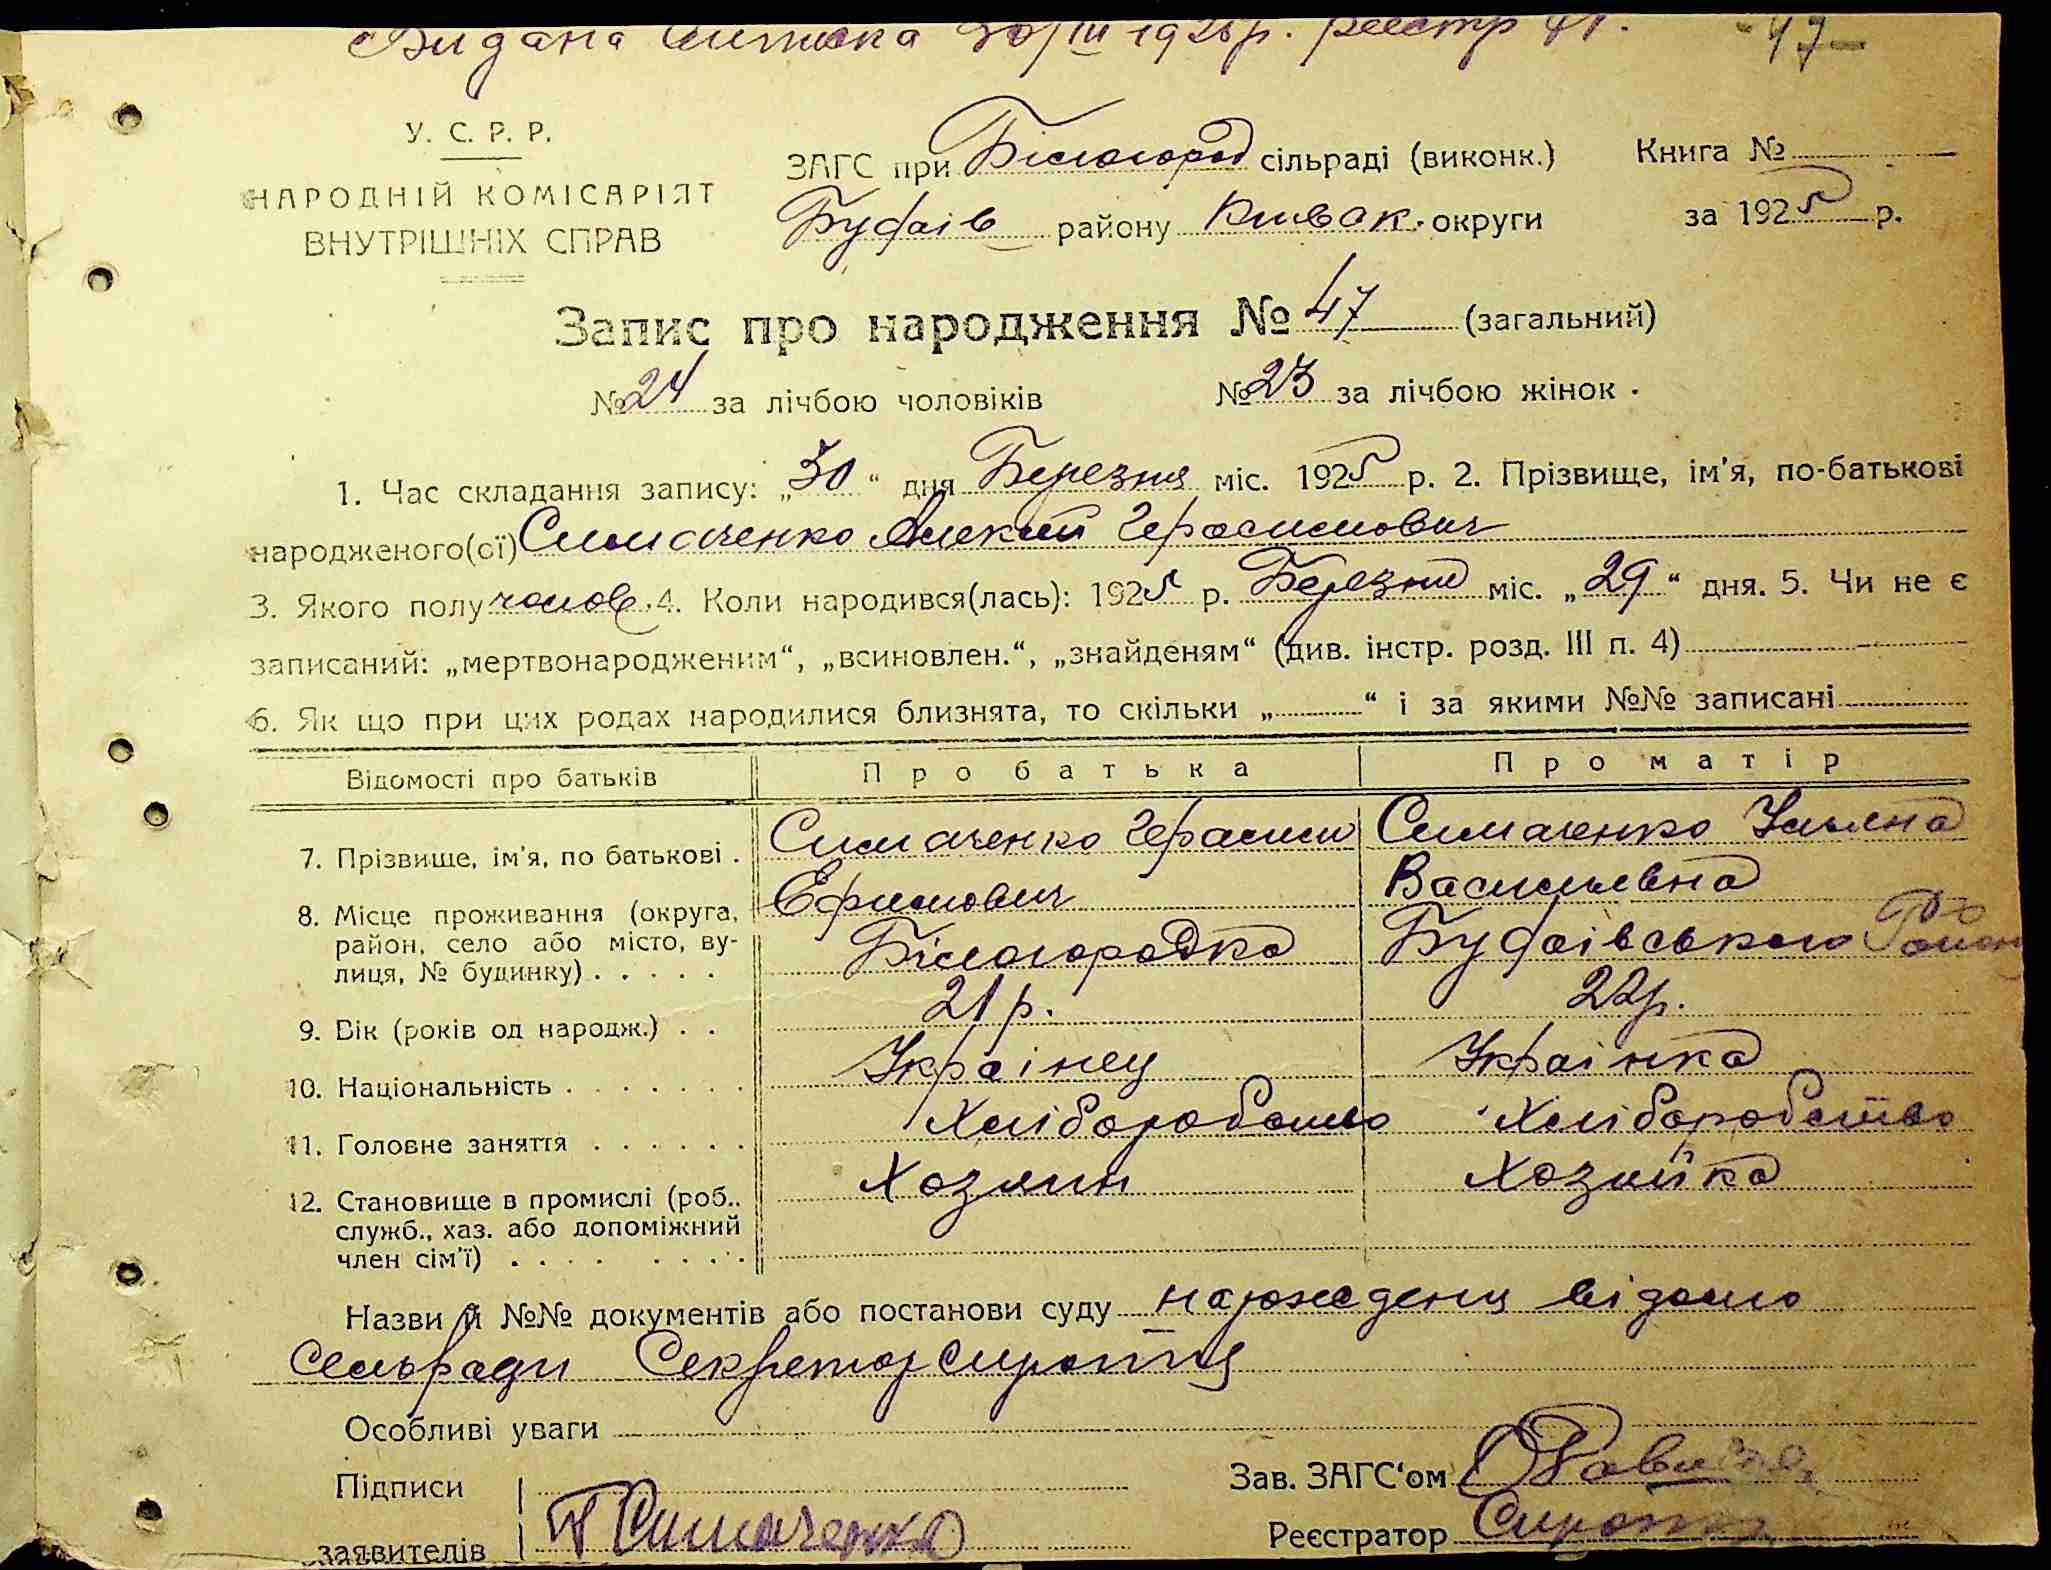 Видана Виписка 30/III 1926р. реєстр
- 47 -
У. С. Р. Р.
НАРОДНІЙ КОМІСАРІЯТ
ВНУТРІШНІХ СПРАВ
ЗАГС при Білогород сільраді (виконк.) Книга №
Будаїв району Київок. округи за 1925 р.
Запис про народження № 47 (загальний)
№ 24 за лічбою чоловіків № 23 за лічбою жінок
1. Час складання запису: „30“ дня Березня міс. 1925 р. 2. Прізвище, ім'я, по-батькові
народженого(ої) Симаченко Алексій Герасимович
3. Якого полу чолов. 4. Коли народився(лась): 1925 р. Березня міс. „29“ дня. 5. Чи не є
записаний: „мертвонародженим“, „всиновлен.“, „знайденям“ (див. інстр. розд. III п. 4)
6. Як що при цих родах народилися близнята, то скільки „ “ і за якими №№ записані
Відомості про батьків Про батька Про матір
7. Прізвище, ім'я, по батькові . Симаченко Герасим Симаченко Ульяна
Ефимович Васильевна
8. Місце проживання (округа,
район, село або місто, ву-
лиця, № будинку) . . . . . Білогородка Будаівського Району
9. Вік (років од народж.) . . 21 р. 22 р.
10. Національність . . . . . . . Украінец Украінка
11. Головне заняття . . . . . . Хліборобство Хліборобство
12. Становище в промислі (роб.. Хозяин Хозяйка
служб., хаз. або допоміжний
член сім'ї) . . . . . . . .
Назви й №№ документів або постанови суду народженя відомо
Сельради Секретар Сирота
Особливі уваги
Підписи Зав. ЗАГС'ом
заявителів Г Симаченко Реєстратор Сирота